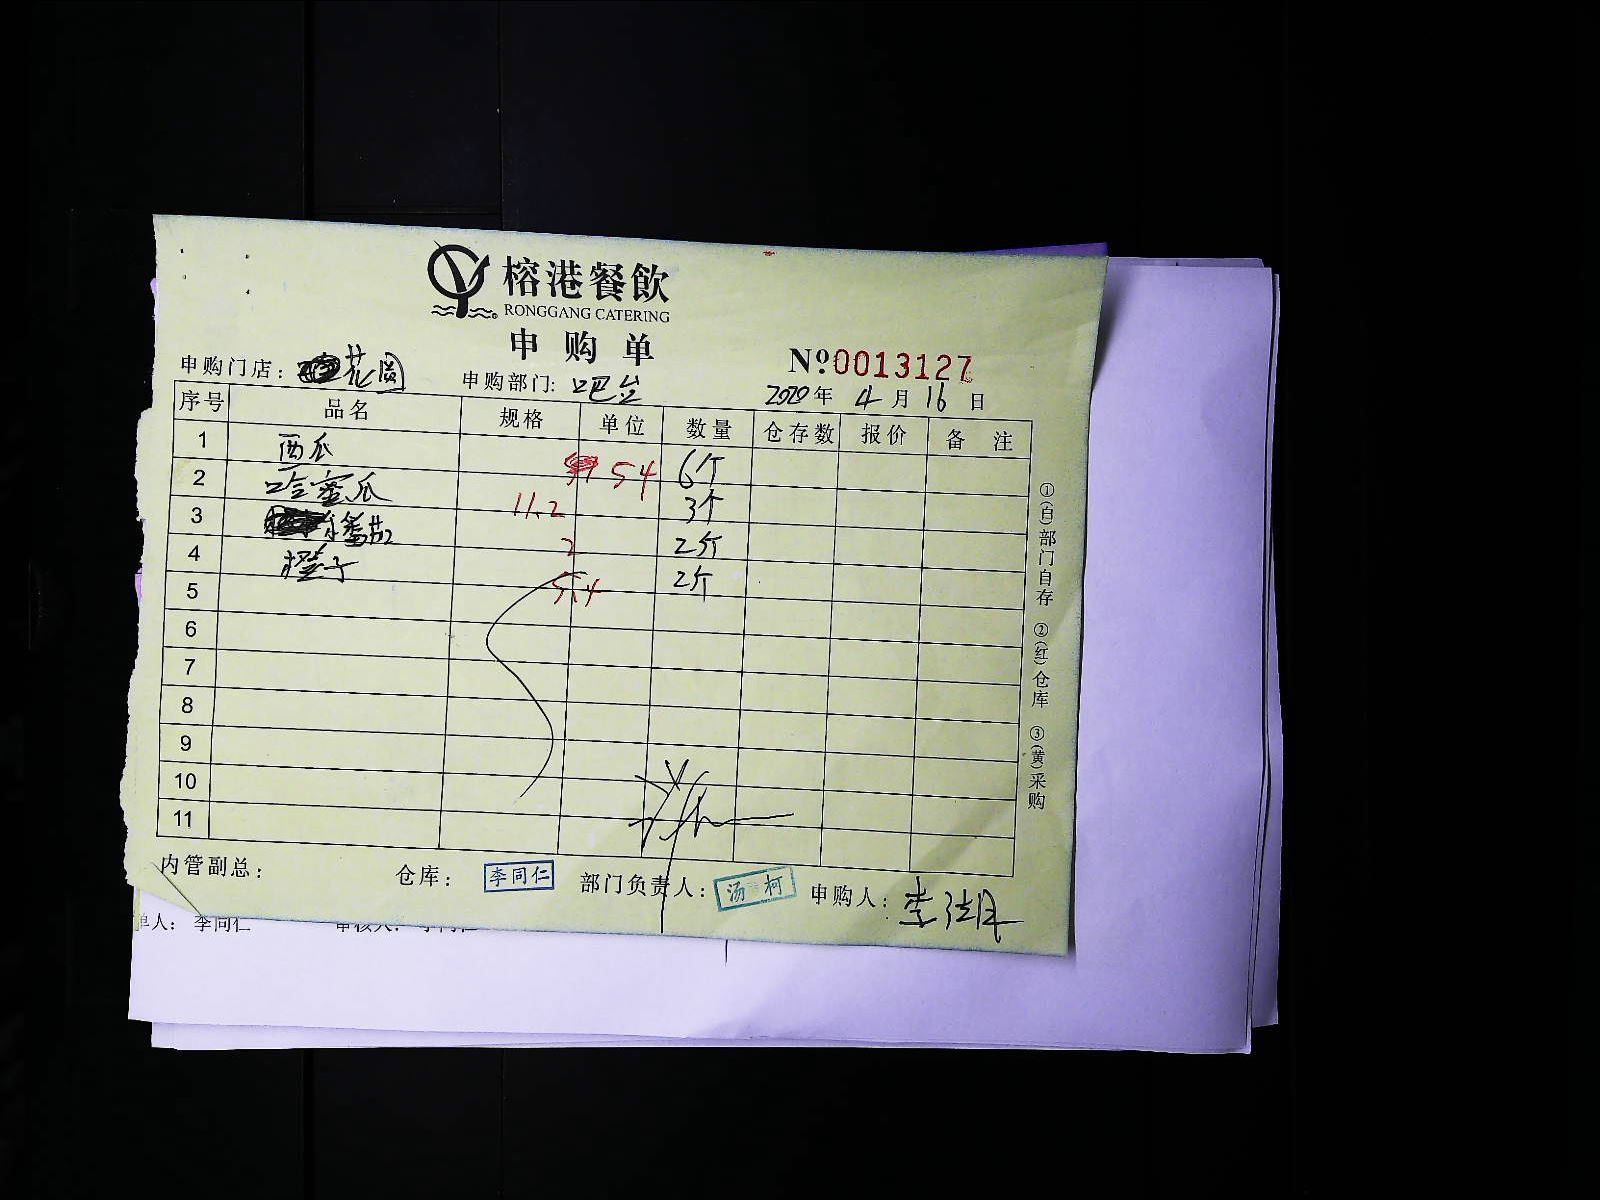 榕港餐飲
RONGGANG CATERING
申购单
申购门店: 花园 申购部门: 吧台 №0013127
2020年 4月 16日
序号 品名 规格 单位 数量 仓存数 报价 备 注
1 西瓜 54 6个
2 哈蜜瓜 11.2 3个
3 番茄 2 2斤
4 橙子 5.4 2斤
5
6
7
8
9
10
11
①(白)部门自存 ②(红)仓库 ③(黄)采购
内管副总: 仓库: 李同仁 部门负责人: 汤柯 申购人: 李
单人: 李同仁 审核人: 李同仁